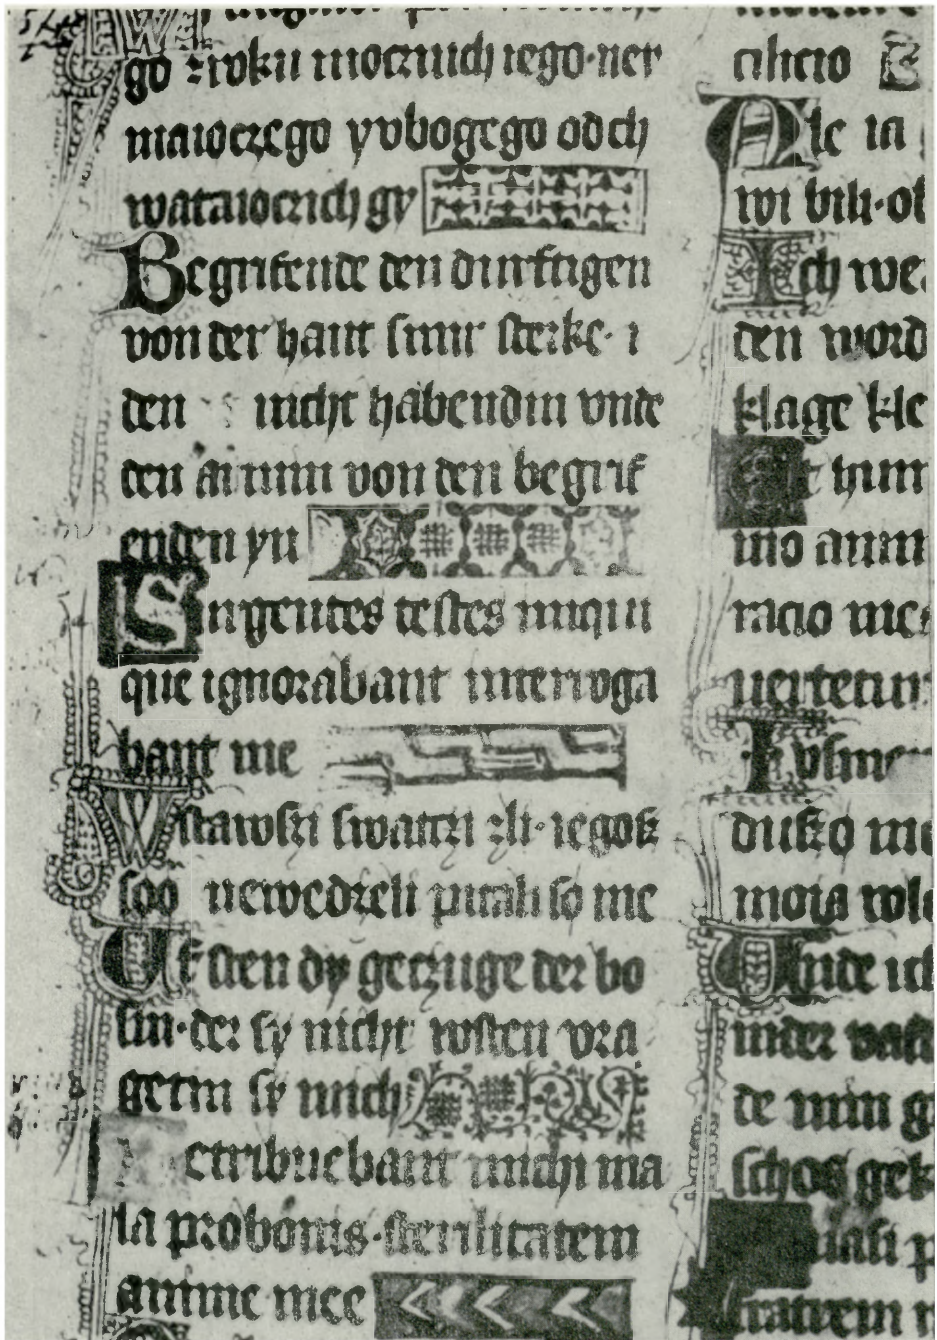 go zroku mocznich iego·ner
maioczego yvbogego odch
wataioczich gy
Begrifende den durftigen
von der hant sinir sterke· i
den nicht habendin vnde
den armin von den begrif
enden yn
Surgentes testes iniqui
que ignorabant interroga
bant me
Wstawszi swatczi zli· iegosz
soo newedzeli pitali so me
Uf sten dy geczuge der bo
sin·der sy nicht wisten vra
getin sy mich
etribuebant michi ma
la pro bonis·sterilitatem
anime mee
cilicio
Ale ia
wi bili·ob
Ich we
den word
klage kle
hum
mo anim
racio me
uertetur
duszo m
moia
Unde ich
inder vast
de min g
schos gek
uasi p
fratrem n